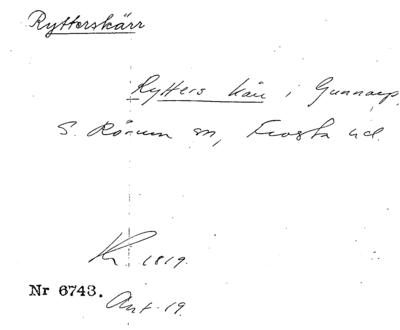 Rytterskärr
Rytters kärr i Gunnarp,
S. Rörum sn, Frosta hd.
Kr 1819.
Nr 6743.
Ant. 19.